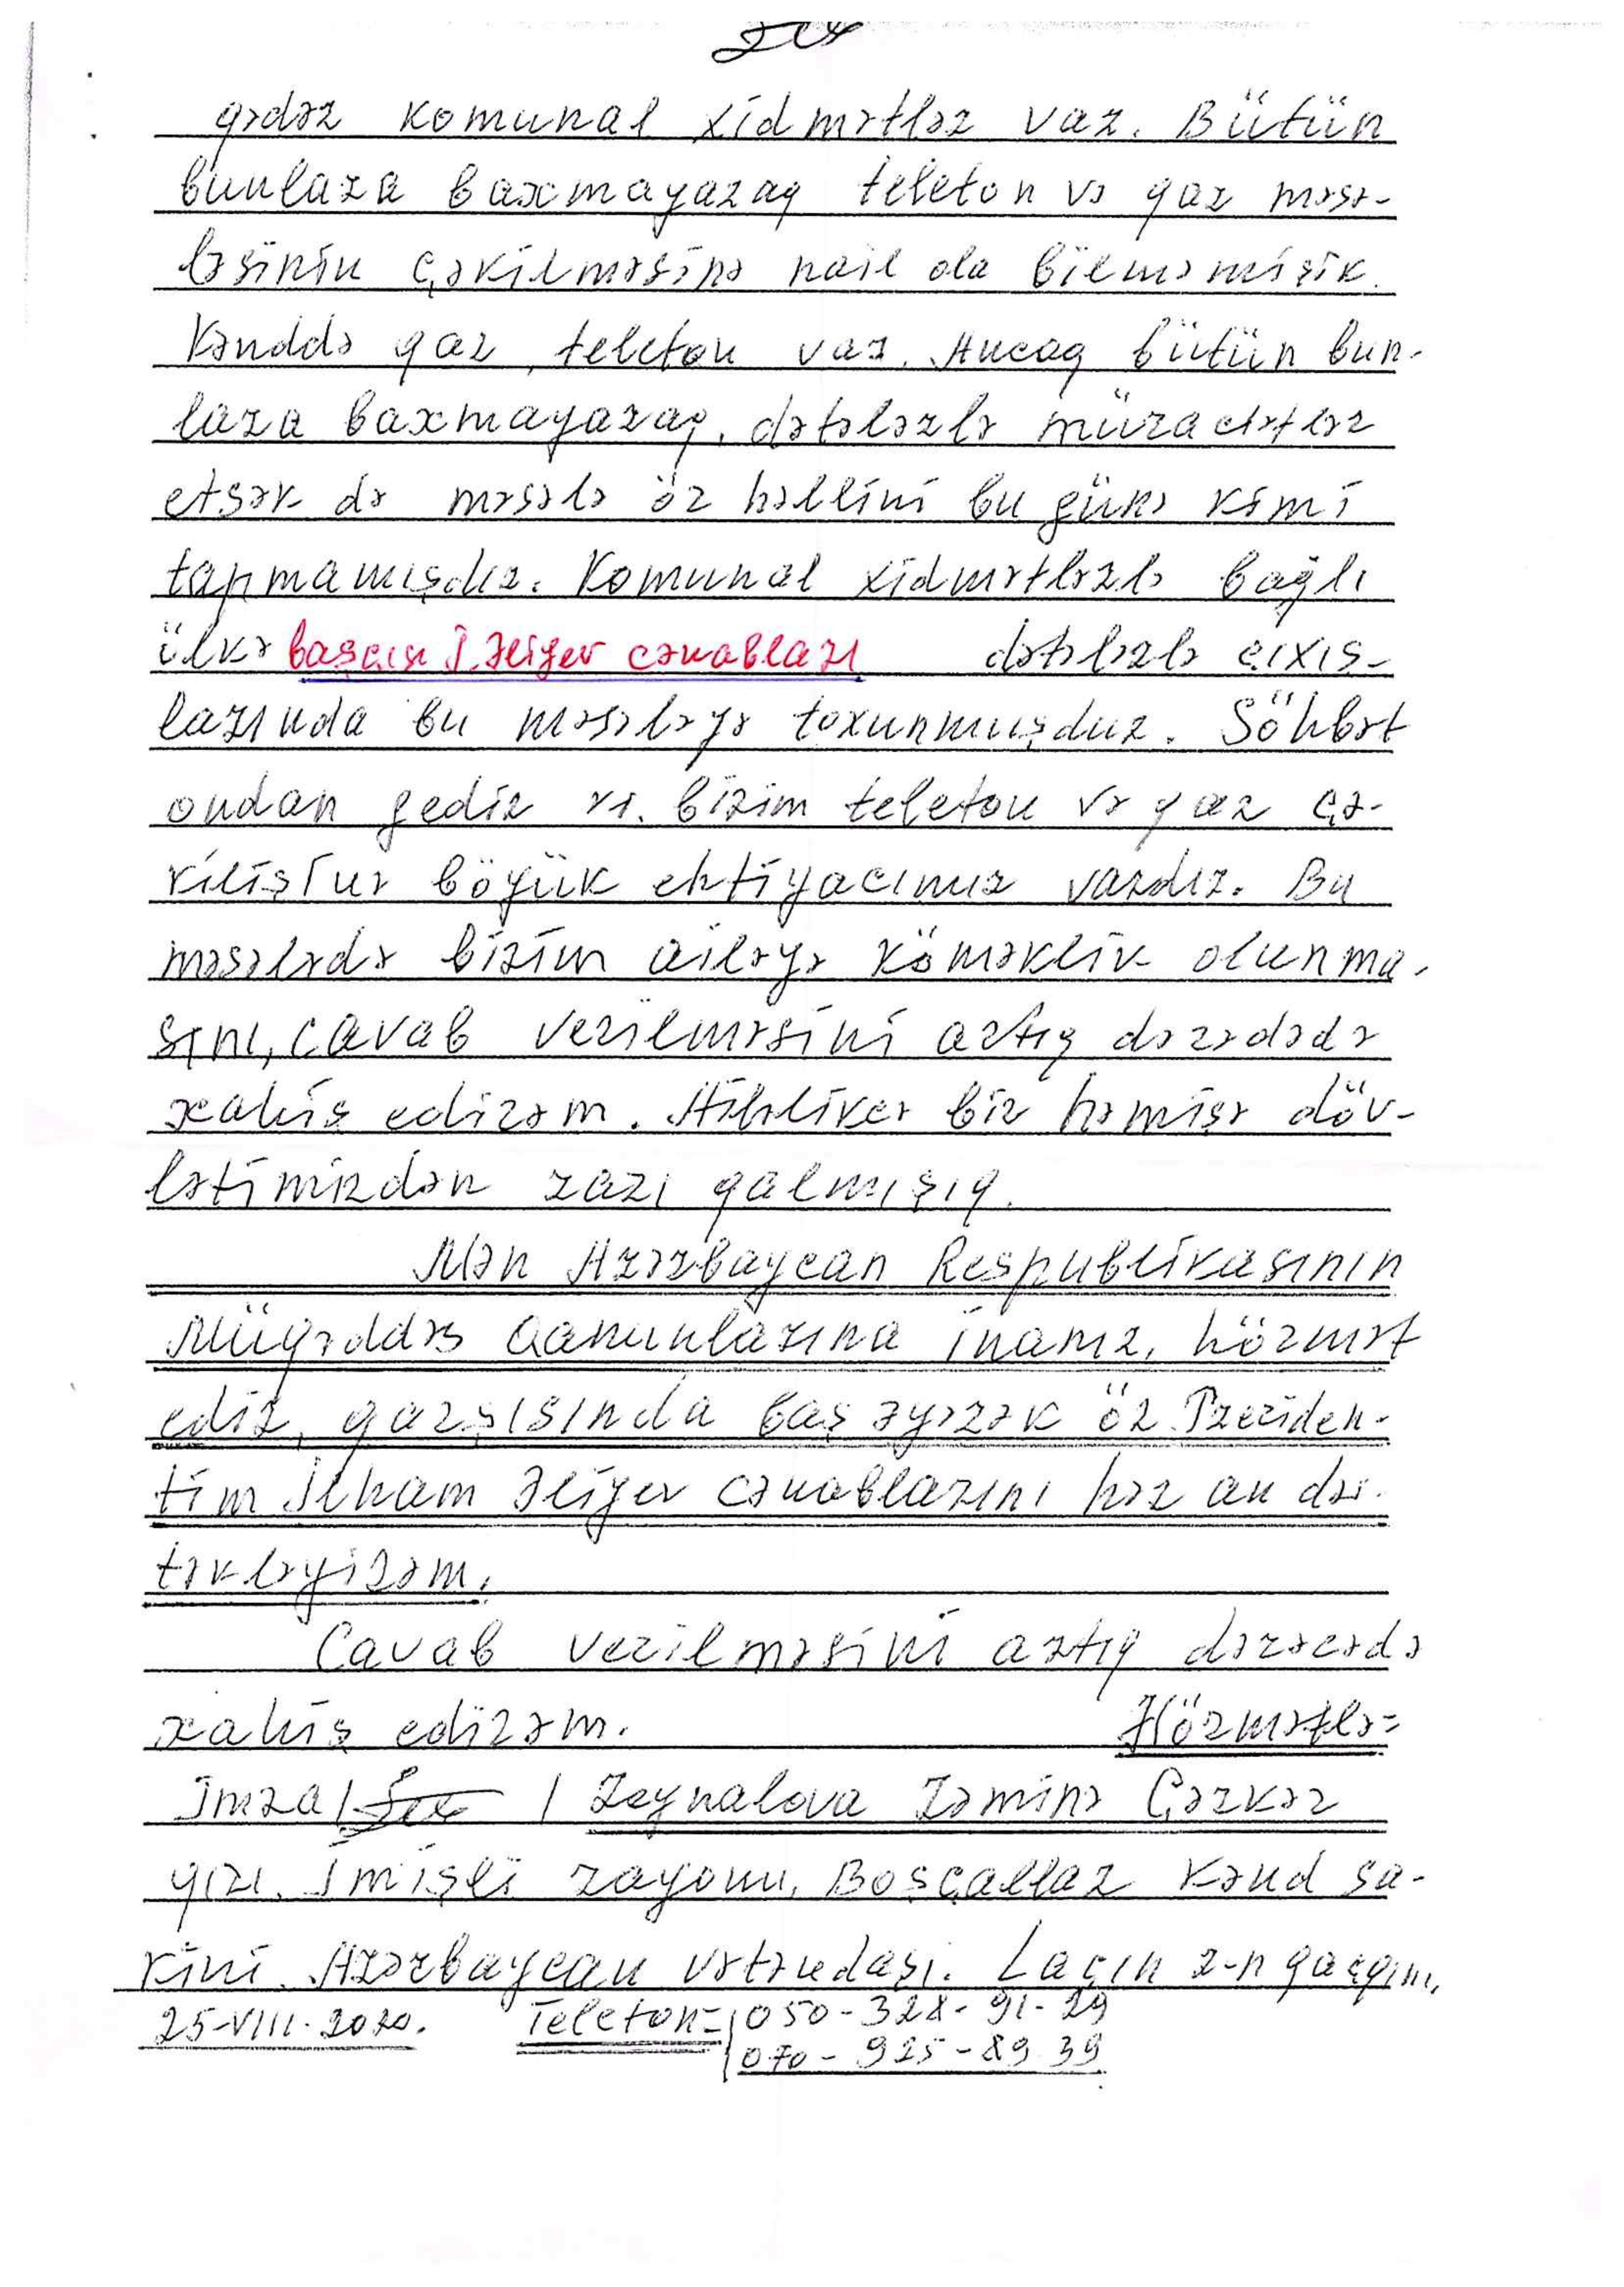 qədər komunal xidmətlər var. Bütün
bunlara baxmayaraq telefon və qaz məsə-
ləsinin çəkilməsinə nail ola bilməmişik.
Kənddə qaz, telefon var. Ancaq bütün bun-
lara baxmayaraq, dəfələrlə müraciətlər
etsək də məsələ öz həllini bu günə kimi
tapmamışdır. Komunal xidmətlərlə bağlı
ölkə başçısı İ. Əliyev cənabları dəfələrlə çıxış-
larında bu məsələyə toxunmuşdur. Söhbət
ondan gedir ki. bizim telefon və qaz çə-
kilişinə böyük ehtiyacımız vardır. Bu
məsələdə bizim ailəyə köməklik olunma-
sını, cavab verilməsini artıq dərədədə
xahiş edirəm. Ailəlikcə biz həmişə döv-
lətimizdən razı qalmışıq.
Mən Azərbaycan Respublikasının
Müqəddəs Qanunlarına inanır, hörmət
edir, qarşısında baş əyərək öz Preziden-
tim İlham Əliyev cənablarını hər an dəs-
təkləyirəm.
Cavab verilməsini artıq dərəcədə
xahiş edirəm. Hörmətlə=
İmza / / Zeynalova Zəminə Çərkəz
qızı. İmişli rayonu, Boşçallar kənd sa-
kini. Azərbaycan vətəndaşı. Laçın r-n qaçqını,
25-VIII-2020. Telefon= 050-328-91-29
070-925-89 39